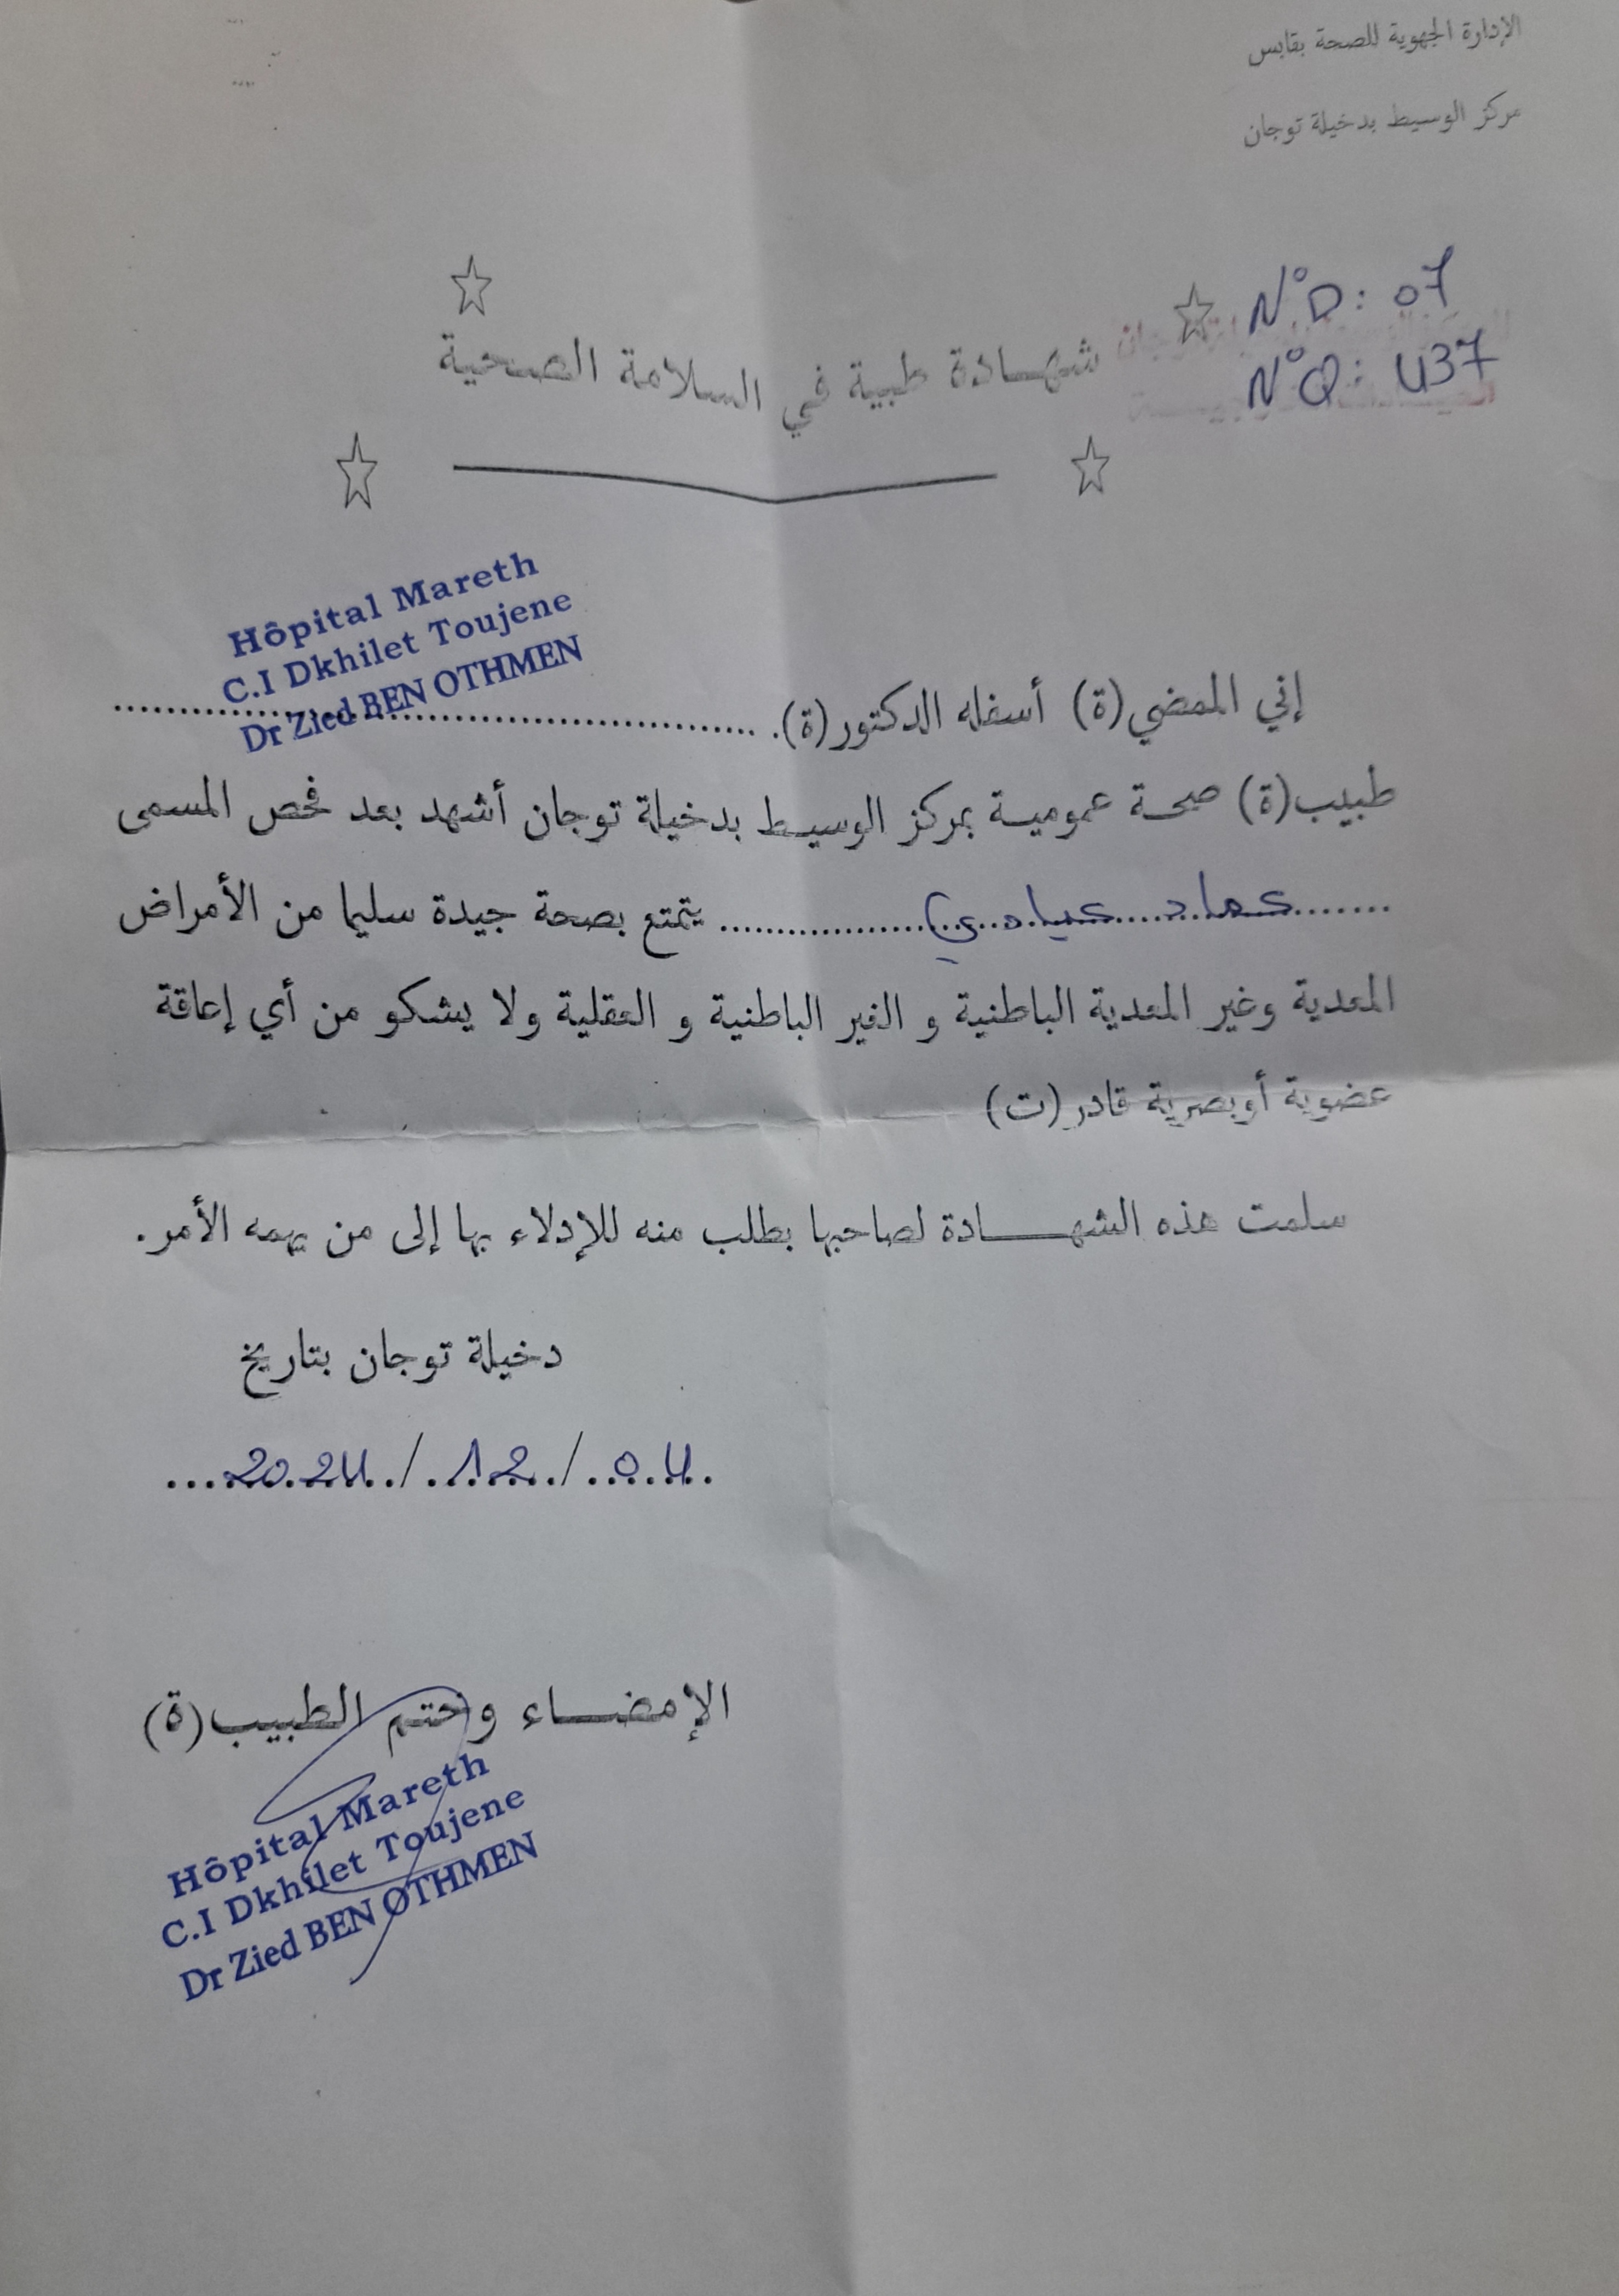 الإدارة الجهوية للصحة بقابس
مركز الوسيط بدخيلة توجان
N°D: 07
N°Q: 437
شهــادة طبية في السلامة الصحية
Hôpital Mareth
C.I Dkhilet Toujene
Dr Zied BEN OTHMEN
إني الممضي(ة) أسفله الدكتور(ة).
طبيب(ة) صحـة عموميـة بمركز الوسيـط بدخيلة توجان أشهد بعد فحص المسمى
عماد عيادي يتمتع بصحة جيدة سليما من الأمراض
المعدية وغير المعدية الباطنية و الغير الباطنية و العقلية ولا يشكو من أي إعاقة
عضوية أوبصرية قادر(ت)
سلمت هذه الشهـــــادة لصاحبها بطلب منه للإدلاء بها إلى من يهمه الأمر.
دخيلة توجان بتاريخ
04 / 12 / 2024
الإمضـــاء وختم الطبيب(ة)
Hôpital Mareth
C.I Dkhilet Toujene
Dr Zied BEN OTHMEN